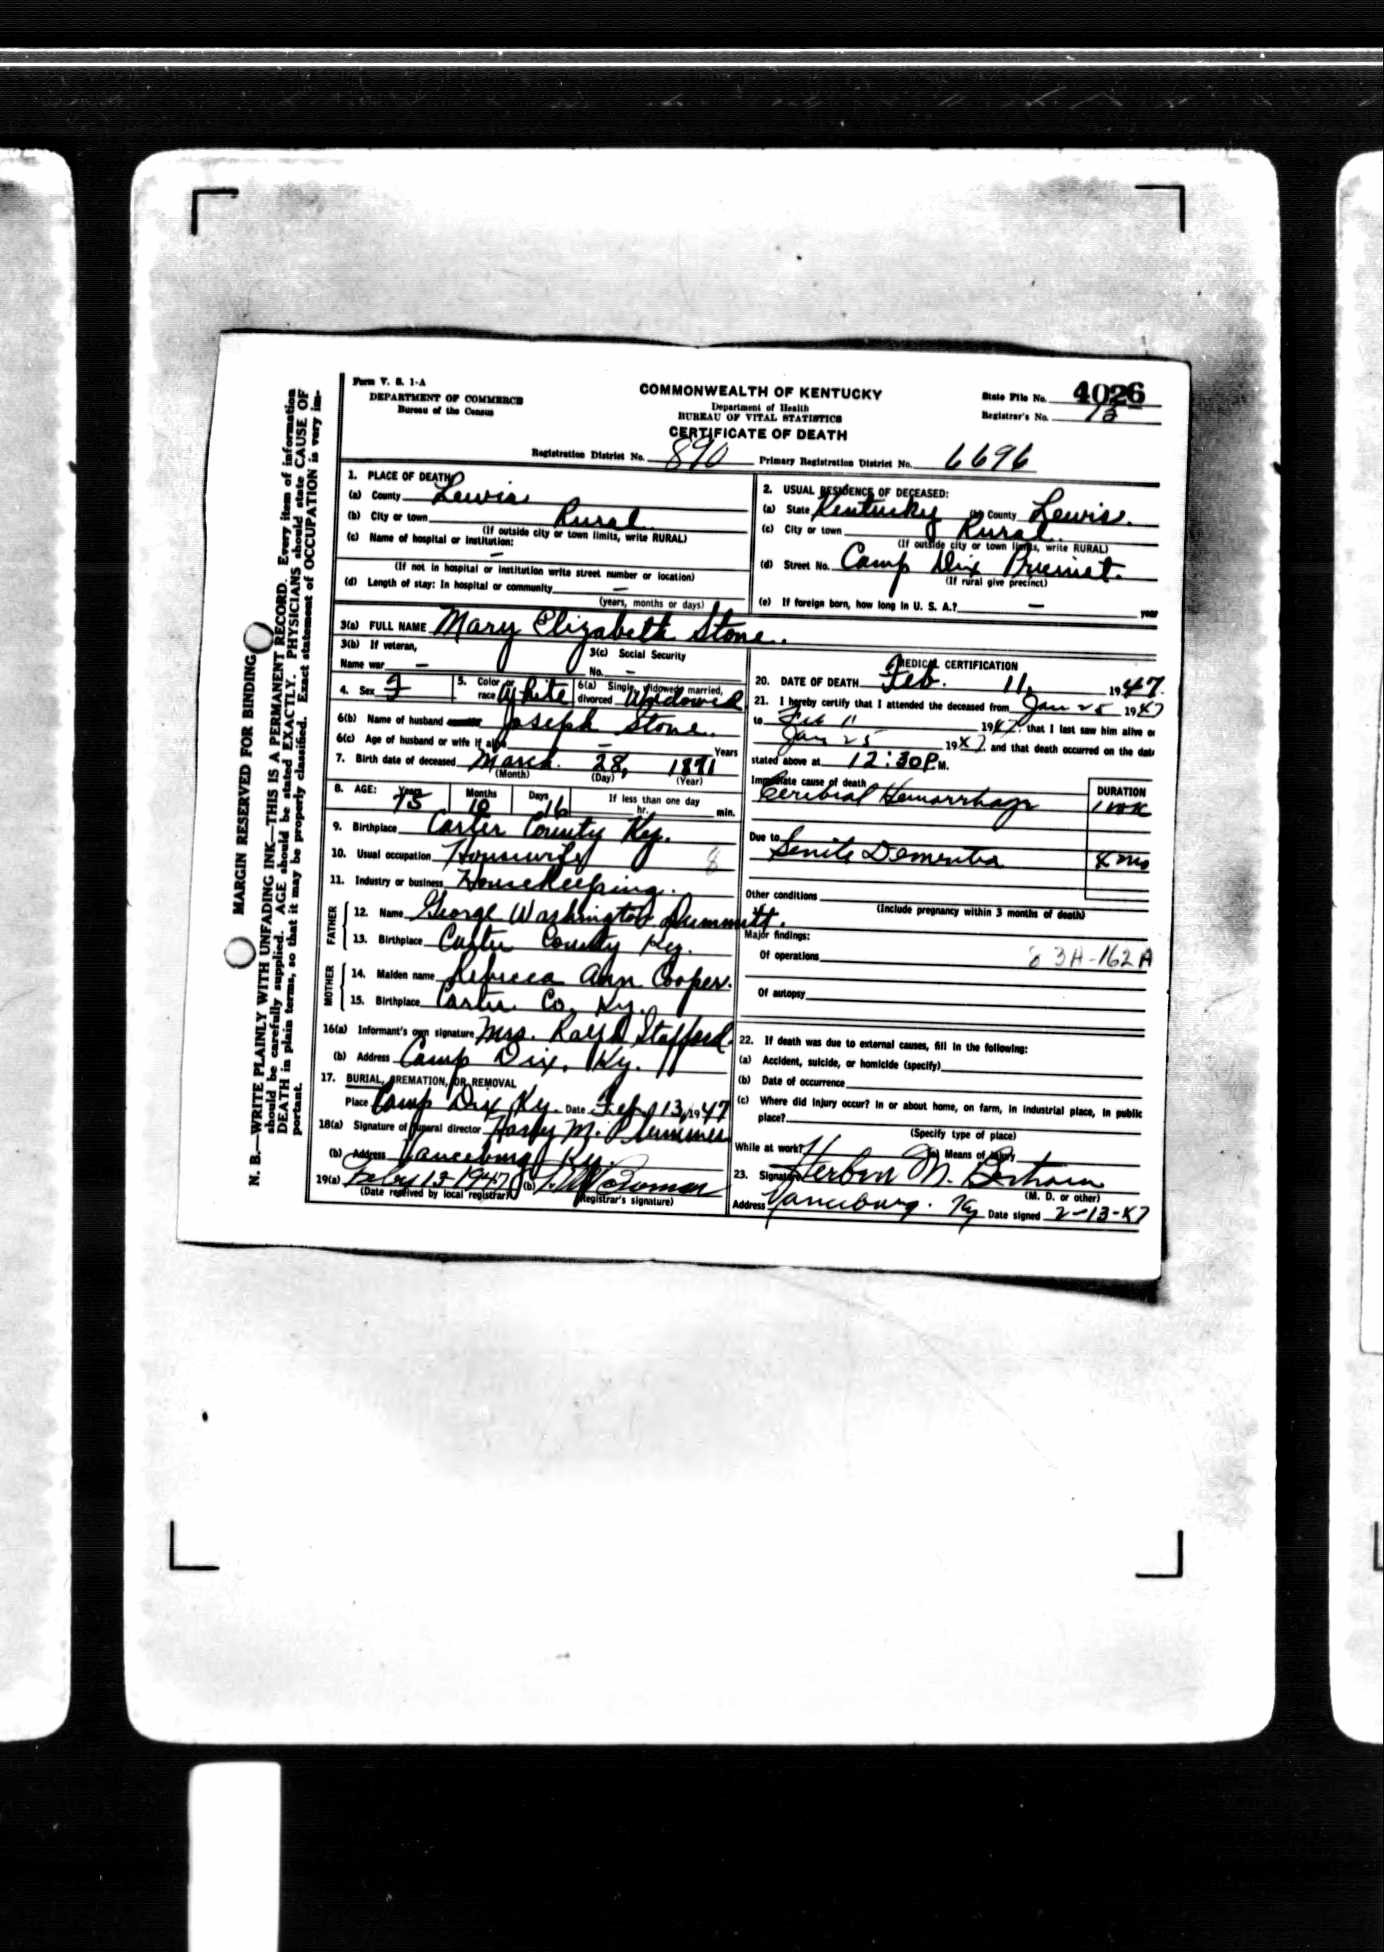 Form V. S. 1-A
DEPARTMENT OF COMMERCE
Bureau of the Census
COMMONWEALTH OF KENTUCKY
Department of Health
BUREAU OF VITAL STATISTICS
CERTIFICATE OF DEATH
State File No. 4026
Registrar's No. 12
Registration District No. 890 Primary Registration District No. 6696
MARGIN RESERVED FOR BINDING
N. B.—WRITE PLAINLY WITH UNFADING INK—THIS IS A PERMANENT RECORD. Every item of information
should be carefully supplied. AGE should be stated EXACTLY. PHYSICIANS should state CAUSE OF
DEATH in plain terms, so that it may be properly classified. Exact statement of OCCUPATION is very im-
portant.
1. PLACE OF DEATH
(a) County Lewis
(b) City or town Rural
(If outside city or town limits, write RURAL)
(c) Name of hospital or institution:
—
(If not in hospital or institution write street number or location)
(d) Length of stay: In hospital or community —
(years, months or days)
2. USUAL RESIDENCE OF DECEASED:
(a) State Kentucky (b) County Lewis.
(c) City or town Rural
(If outside city or town limits, write RURAL)
(d) Street No. Camp Dix Precinct.
(If rural give precinct)
(e) If foreign born, how long in U. S. A.? — year
3(a) FULL NAME Mary Elizabeth Stone.
3(b) If veteran,
Name war —
3(c) Social Security
No. —
4. Sex F
5. Color or race White
6(a) Single, widowed, married, divorced Widowed
6(b) Name of husband Joseph Stone.
6(c) Age of husband or wife if alive — Years
7. Birth date of deceased March 28, 1871
(Month) (Day) (Year)
8. AGE: Years 75 Months 10 Days 16 If less than one day
hr. min.
9. Birthplace Carter County Ky.
10. Usual occupation Housewife 8
11. Industry or business Housekeeping.
FATHER
12. Name George Washington Dummitt.
13. Birthplace Carter County Ky.
MOTHER
14. Maiden name Rebecca Ann Cooper.
15. Birthplace Carter Co. Ky.
16(a) Informant's own signature Mrs. Ralph Stafford.
(b) Address Camp Dix, Ky.
17. BURIAL, CREMATION, OR REMOVAL
Place Camp Dix Ky. Date Feb. 13, 1947
18(a) Signature of funeral director Harry M. Plummer
(b) Address Vanceburg Ky.
19(a) Feby 13 1947 (b) Bowman
(Date received by local registrar) (Registrar's signature)
MEDICAL CERTIFICATION
20. DATE OF DEATH Feb. 11, 1947.
21. I hereby certify that I attended the deceased from Jan 25 1947
to Feb 11 1947, that I last saw him alive on
Jan 25 1947 and that death occurred on the date
stated above at 12:30 P M.
Immediate cause of death DURATION
Cerebral Hemorrhage 1 wk
Due to Senile Dementia 4 mo
Other conditions
(Include pregnancy within 3 months of death)
Major findings:
Of operations 83A-162A
Of autopsy
22. If death was due to external causes, fill in the following:
(a) Accident, suicide, or homicide (specify)
(b) Date of occurrence
(c) Where did injury occur? in or about home, on farm, in industrial place, in public
place?
(Specify type of place)
While at work? (e) Means of injury
23. Signature Herbon M. Bertram
(M. D. or other)
Address Vanceburg. Ky Date signed 2-13-47